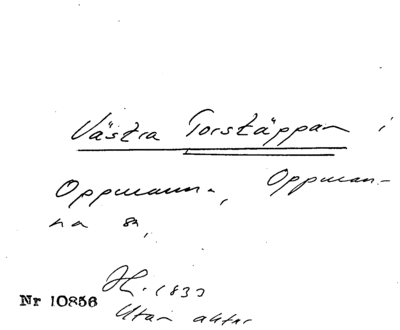 Västra Torstäppan i
Oppmanna, Oppman-
na sn,
Hl. 1833
Nr 10856
Utan aktnr